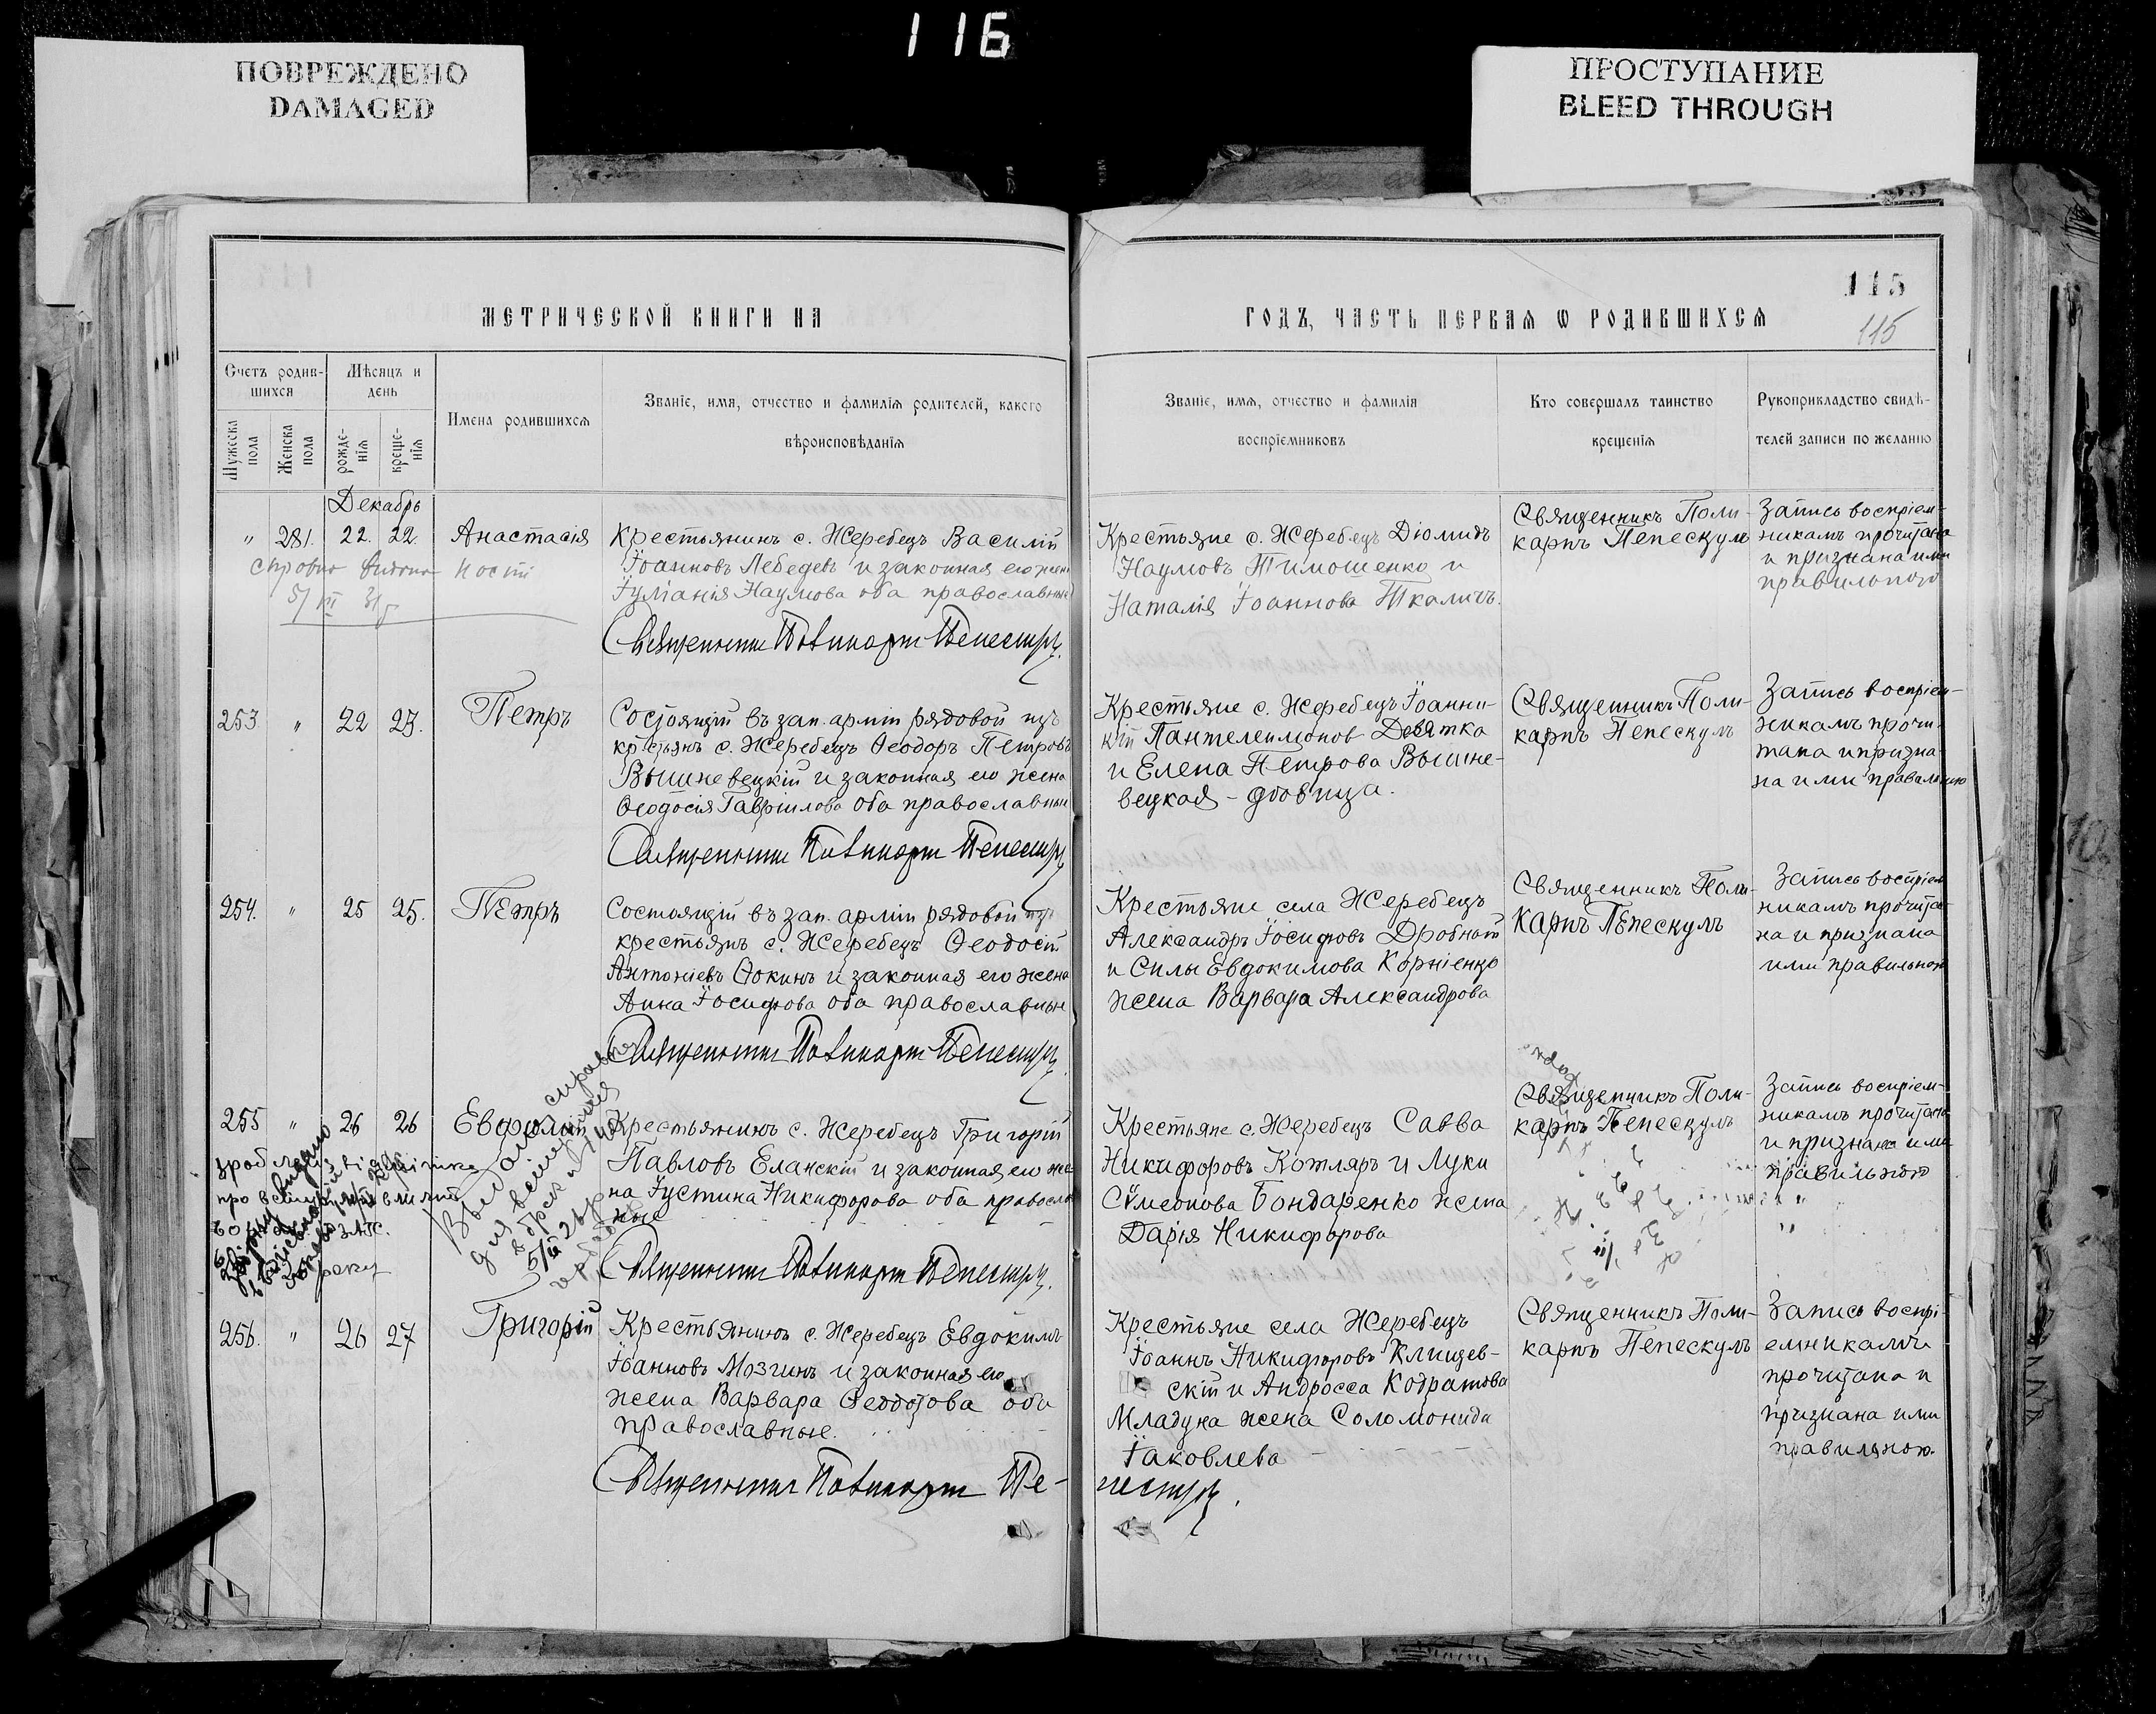 116
ПОВРЕЖДЕНО
DAMAGED
ПРОСТУПАНИЕ
BLEED THROUGH
МЕТРИЧЕСКОЙ КНИГИ НА
ГОДЪ, ЧАСТЬ ПЕРВАЯ Ѡ РОДИВШИХСЯ
115
115
Счетъ родив-
шихся
Мужеска пола
Женска пола
Мѣсяцъ и
день
рожде-
нія
креще-
нія
Имена родившихся
Званіе, имя, отчество и фамилія родителей, какого
вѣроисповѣданія
Званіе, имя, отчество и фамилія
воспріемниковъ
Кто совершалъ таинство
крещенія
Рукоприкладство свидѣ-
телей записи по желанію
Декабрь
" 281. 22. 22. Анастасія
Крестьянинъ с. Жеребецъ Василій
Іоанновъ Лебедевъ и законная его жена
Іуліанія Наумова оба православные
Священникъ Поликарпъ Пепескулъ
Крестьяне с. Жеребецъ Діомидъ
Наумовъ Тимошенко и
Наталія Іоаннова Ткаличъ.
Священникъ Поли-
карпъ Пепескулъ
Запись воспріем-
никамъ прочитана
и признана ими
правильною
253 " 22 23. Петръ
Состоящій въ зап. арміи рядовой изъ
крестьянъ с. Жеребецъ Ѳеодоръ Петровъ
Вышневецкій и законная его жена
Ѳеодосія Гавріилова оба православные
Священникъ Поликарпъ Пепескулъ
Крестьяне с. Жеребецъ Іоанни-
кій Пантелеимонов Девятка
и Елена Петрова Вышне-
вецкая - вдовица.
Священникъ Поли-
карпъ Пепескулъ
Запись воспріем-
никамъ прочи-
тана и призна-
на ими правильною
254. " 25 25. Петръ
Состоящій въ зап. арміи рядовой изъ
крестьянъ с. Жеребецъ Ѳеодосій
Антоніевъ Ѳокинъ и законная его жена
Анна Іосифова оба православные
Священникъ Поликарпъ Пепескулъ
Крестьяне села Жеребецъ
Александръ Іосифовъ Дробной
и Силы Евдокимова Корніенко
жена Варвара Александрова
Священникъ Поли-
карпъ Пепескулъ
Запись воспріем
никамъ прочита-
на и признана
ими правильною
255 " 26 26 Евфимій
Крестьянинъ с. Жеребецъ Григорій
Павловъ Еланскій и законная его же-
на Іустина Никифорова оба правосла
ные
Священникъ Поликарпъ Пепескулъ
Крестьяне с. Жеребецъ Савва
Никифоровъ Котляръ и Луки
Сѵмеонова Бондаренко жена
Дарія Никифорова
Священникъ Поли-
карпъ Пепескулъ
Запись воспріем-
никамъ прочитана
и признана ими
правильною
256. " 26 27 Григорій
Крестьянинъ с. Жеребецъ Евдокимъ
Іоанновъ Мозгинъ и законная его
жена Варвара Ѳеодотова оба
православные.
Священникъ Поликарпъ Пе-
пескулъ.
Крестьяне села Жеребецъ
Іоаннъ Никифоровъ Клищев-
скій и Андросса Кодратова
Младуна жена Соломонида
Іаковлева
Священникъ Поли-
карпъ Пепескулъ
Запись воспрі-
емникамъ
прочитана и
признана ими
правильною.